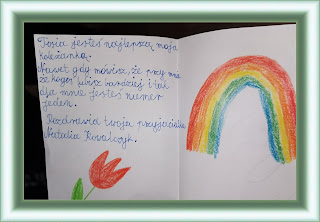 Tosia jesteś najlepszą moją
koleżanką.
Nawet gdy mówisz, że przy mnie
że kogoś lubisz bardziej i tak
dla mnie jesteś numer
jeden.
Pozdrawia twoja przyjaciółka
Natalia Kowalczyk.